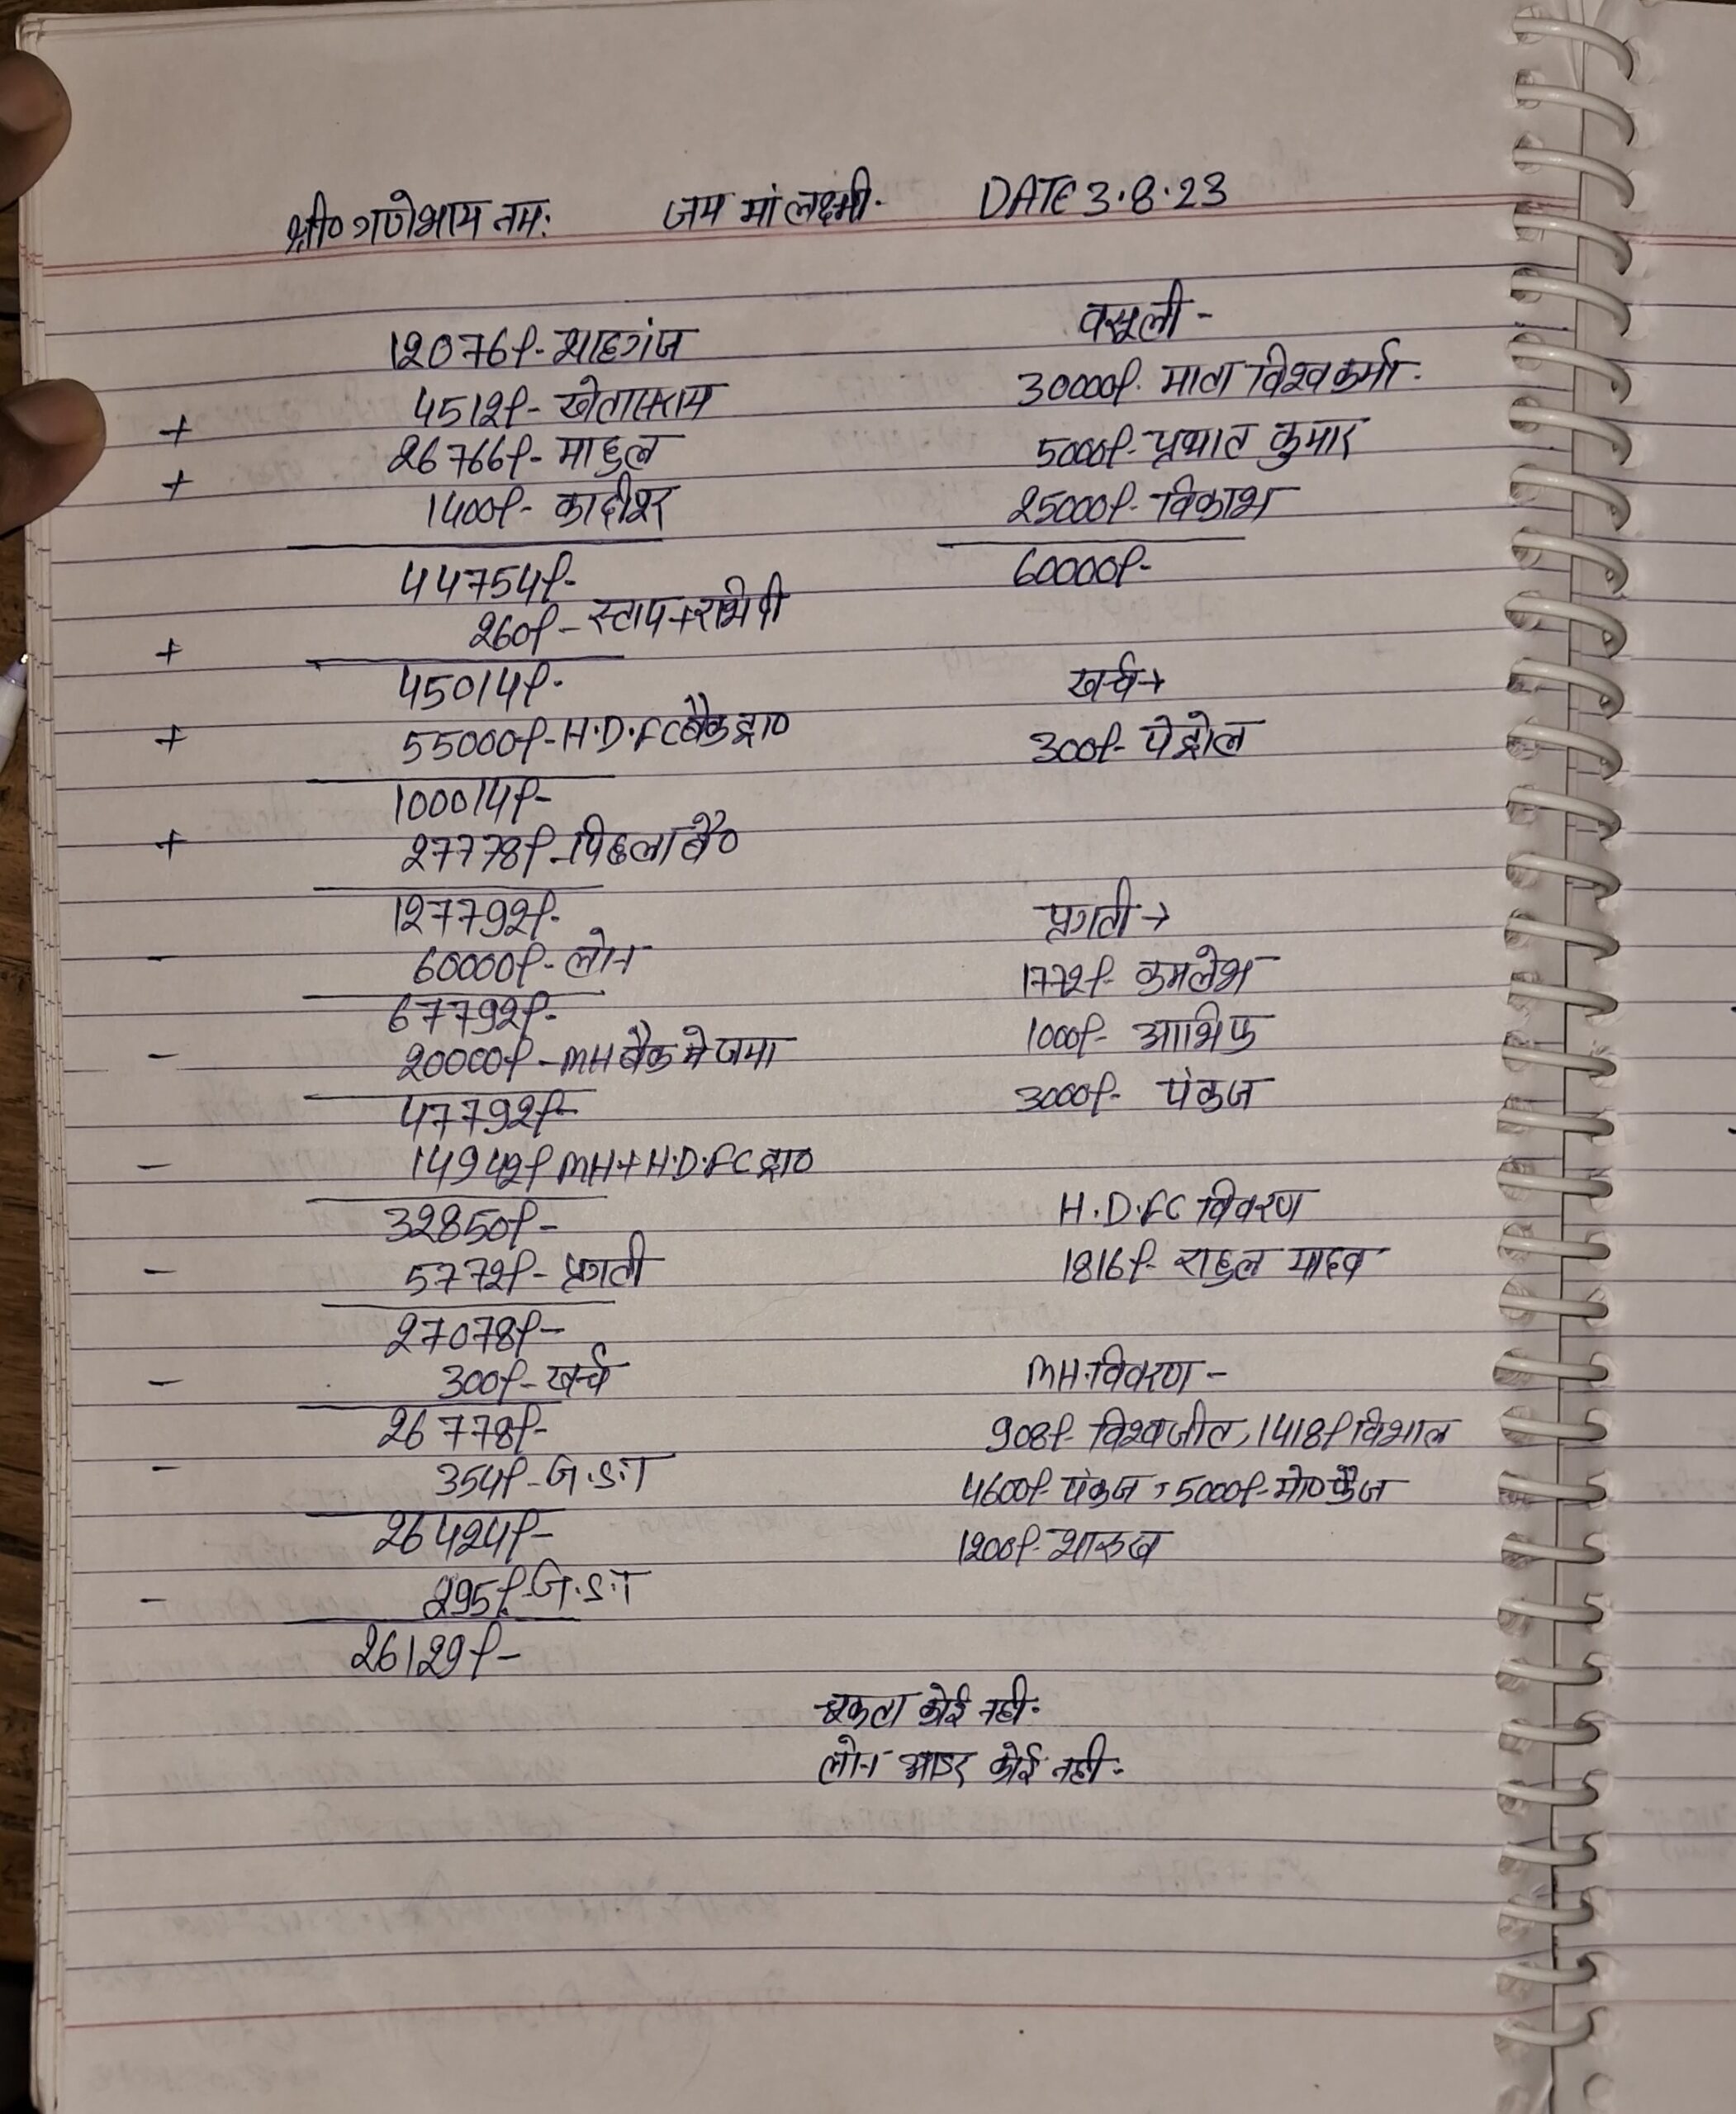 श्री० गणेशाय नम: जय मां लक्ष्मी. DATE 3.8.23
12076/- शाहगंज
4512/- खेतासराय
26766/- माहुल
1400/- कादीपुर
44754/-
260/- स्टाप+राशिपी
45014/-
55000/- H.D.FC बैंक द्वा०
100014/-
27778/- पिछला बै०
127792/-
60000/- लोन
67792/-
20000/- MH बैंक मे जमा
47792/-
14942/- MH+H.D.FC द्वा०
32850/-
5772/- प्रगती
27078/-
300/- खर्च
26778/-
354/- G.S.T
26424/-
295/- G.S.T
26129/-
वसूली -
30000/- माता विश्वकर्मा.
5000/- प्रभात कुमार
25000/- विकाश
60000/-
खर्च→
300/- पेट्रोल
प्रगती →
1772/- कमलेश
1000/- आशिफ
3000/- पंकज
H.D.FC विवरण
1816/- राहुल यादव
MH.विवरण -
908/- विश्वजीत, 1418/- विशाल
4600/- पंकज, 5000/- मो० फैज
1200/- शारुख
चुकता कोई नही.
लोन आडर कोई नही.